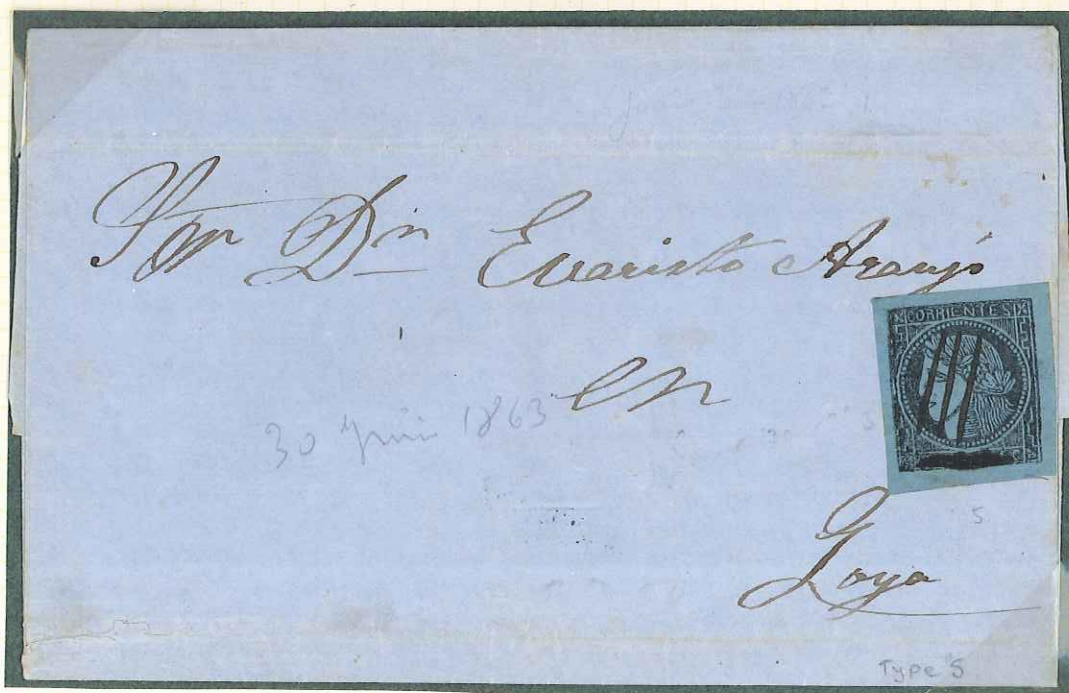 Sor Dn Evaristo Araujo
CORRIENTES
en
30 Juin 1863
5
Goya
Type 5